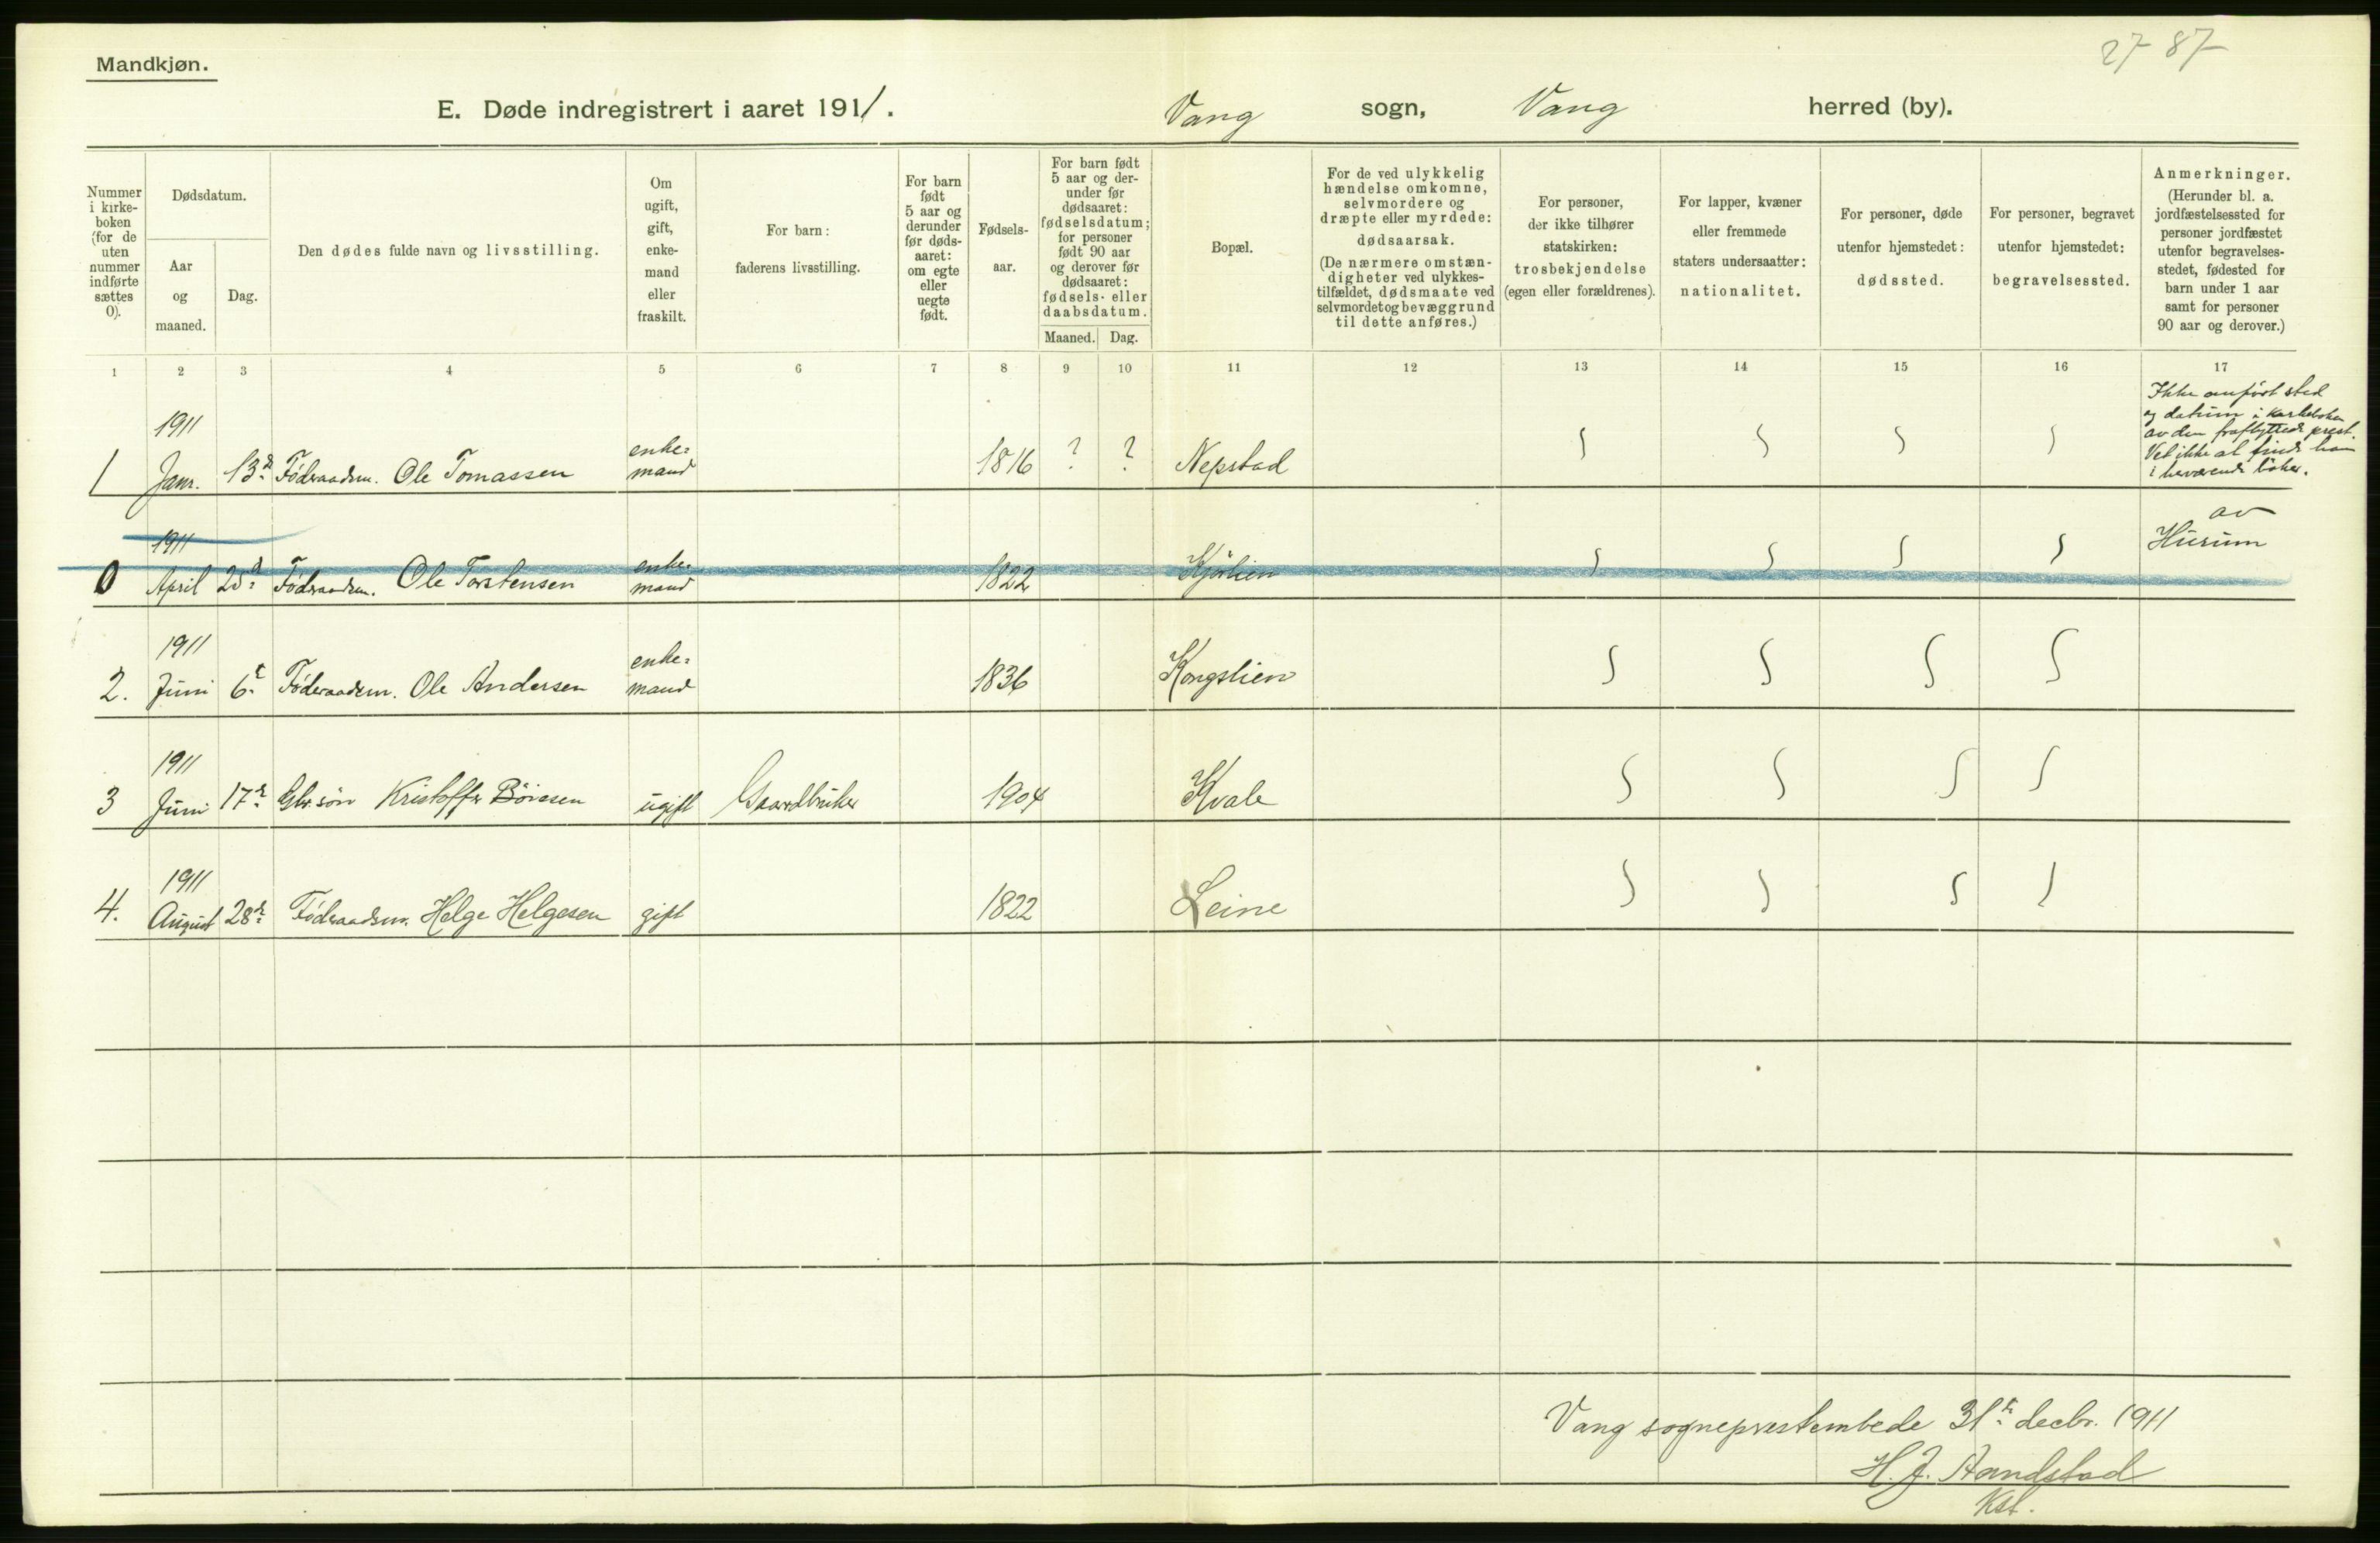 27 87
Mandkjøn.
E. Døde indregistrert i aaret 1911. Vang sogn, Vang herred (by).
Nummer i kirke-boken (for de uten nummer indførte sættes 0).
Dødsdatum.
Aar og maaned.
Dag.
Den dødes fulde navn og livsstilling.
Om ugift, gift, enke-mand eller fraskilt.
For barn: faderens livsstilling.
For barn født 5 aar og derunder før døds-aaret: om egte eller uegte født.
Fødsels-aar.
For barn født 5 aar og der-under før dødsaaret: fødselsdatum; for personer født 90 aar og derover før dødsaaret: fødsels- eller daabsdatum.
Maaned. Dag.
Bopæl.
For de ved ulykkelig hændelse omkomne, selvmordere og dræpte eller myrdede: dødsaarsak. (De nærmere omstæn-digheter ved ulykkes-tilfældet, dødsmaate ved selvmord et og bevæggrund til dette anføres.)
For personer, der ikke tilhører statskirken: trosbekjendelse (egen eller forældrenes).
For lapper, kvæner eller fremmede staters undersaatter: nationalitet.
For personer, døde utenfor hjemstedet: dødssted.
For personer, begravet utenfor hjemstedet: begravelsessted.
Anmerkninger. (Herunder bl. a. jordfæstelsessted for personer jordfæstet utenfor begravelses-stedet, fødested for barn under 1 aar samt for personer 90 aar og derover.)
1 2 3 4 5 6 7 8 9 10 11 12 13 14 15 16 17
1 1911 Janr. 13de Föderaadsm. Ole Tomassen enke-mand 1816 ? ? Nepstad
Ikke anfört sted
og datum i kirkeboken
av den fraflyttede prest.
Vet ikke at finde ham
i herværende böker.
0 1911 April 25de Föderaadsm. Ole Torstensen enke-mand 1822 av Hurum
2. 1911 Juni 6te Föderaadsm. Ole Andersen enke-mand 1836 Kongslien
3 1911 Juni 17de Gbr. sön Kristoffer Böiesen ugift Gaardbruker 1904 Kvale
4. 1911 August 28de Föderaadsm. Helge Helgesen gift 1822 Leine
Vang sogneprestembede 31te decbr. 1911
H. J. Aandstad
Kst.